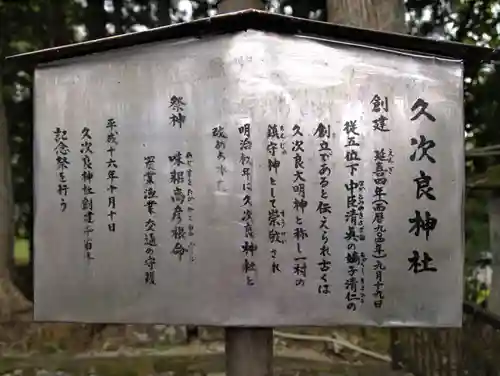 久次良神社
創建 延喜四年(西暦九〇四年)九月十九日
従五位下 中臣清眞の嫡子清仁の
創立であると伝えられ古くは
久次良大明神と称し一村の
鎮守神として崇敬され
明治初年に久次良神社と
改めました
祭神 味耜高彦根命
農業漁業交通の守護
平成十六年十月十日
久次良神社創建千百年
記念祭を行う